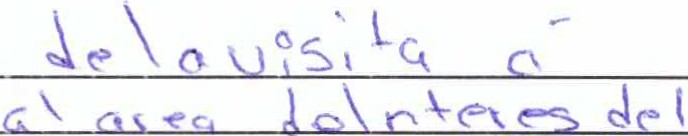 de la visita a
al area de Interes del